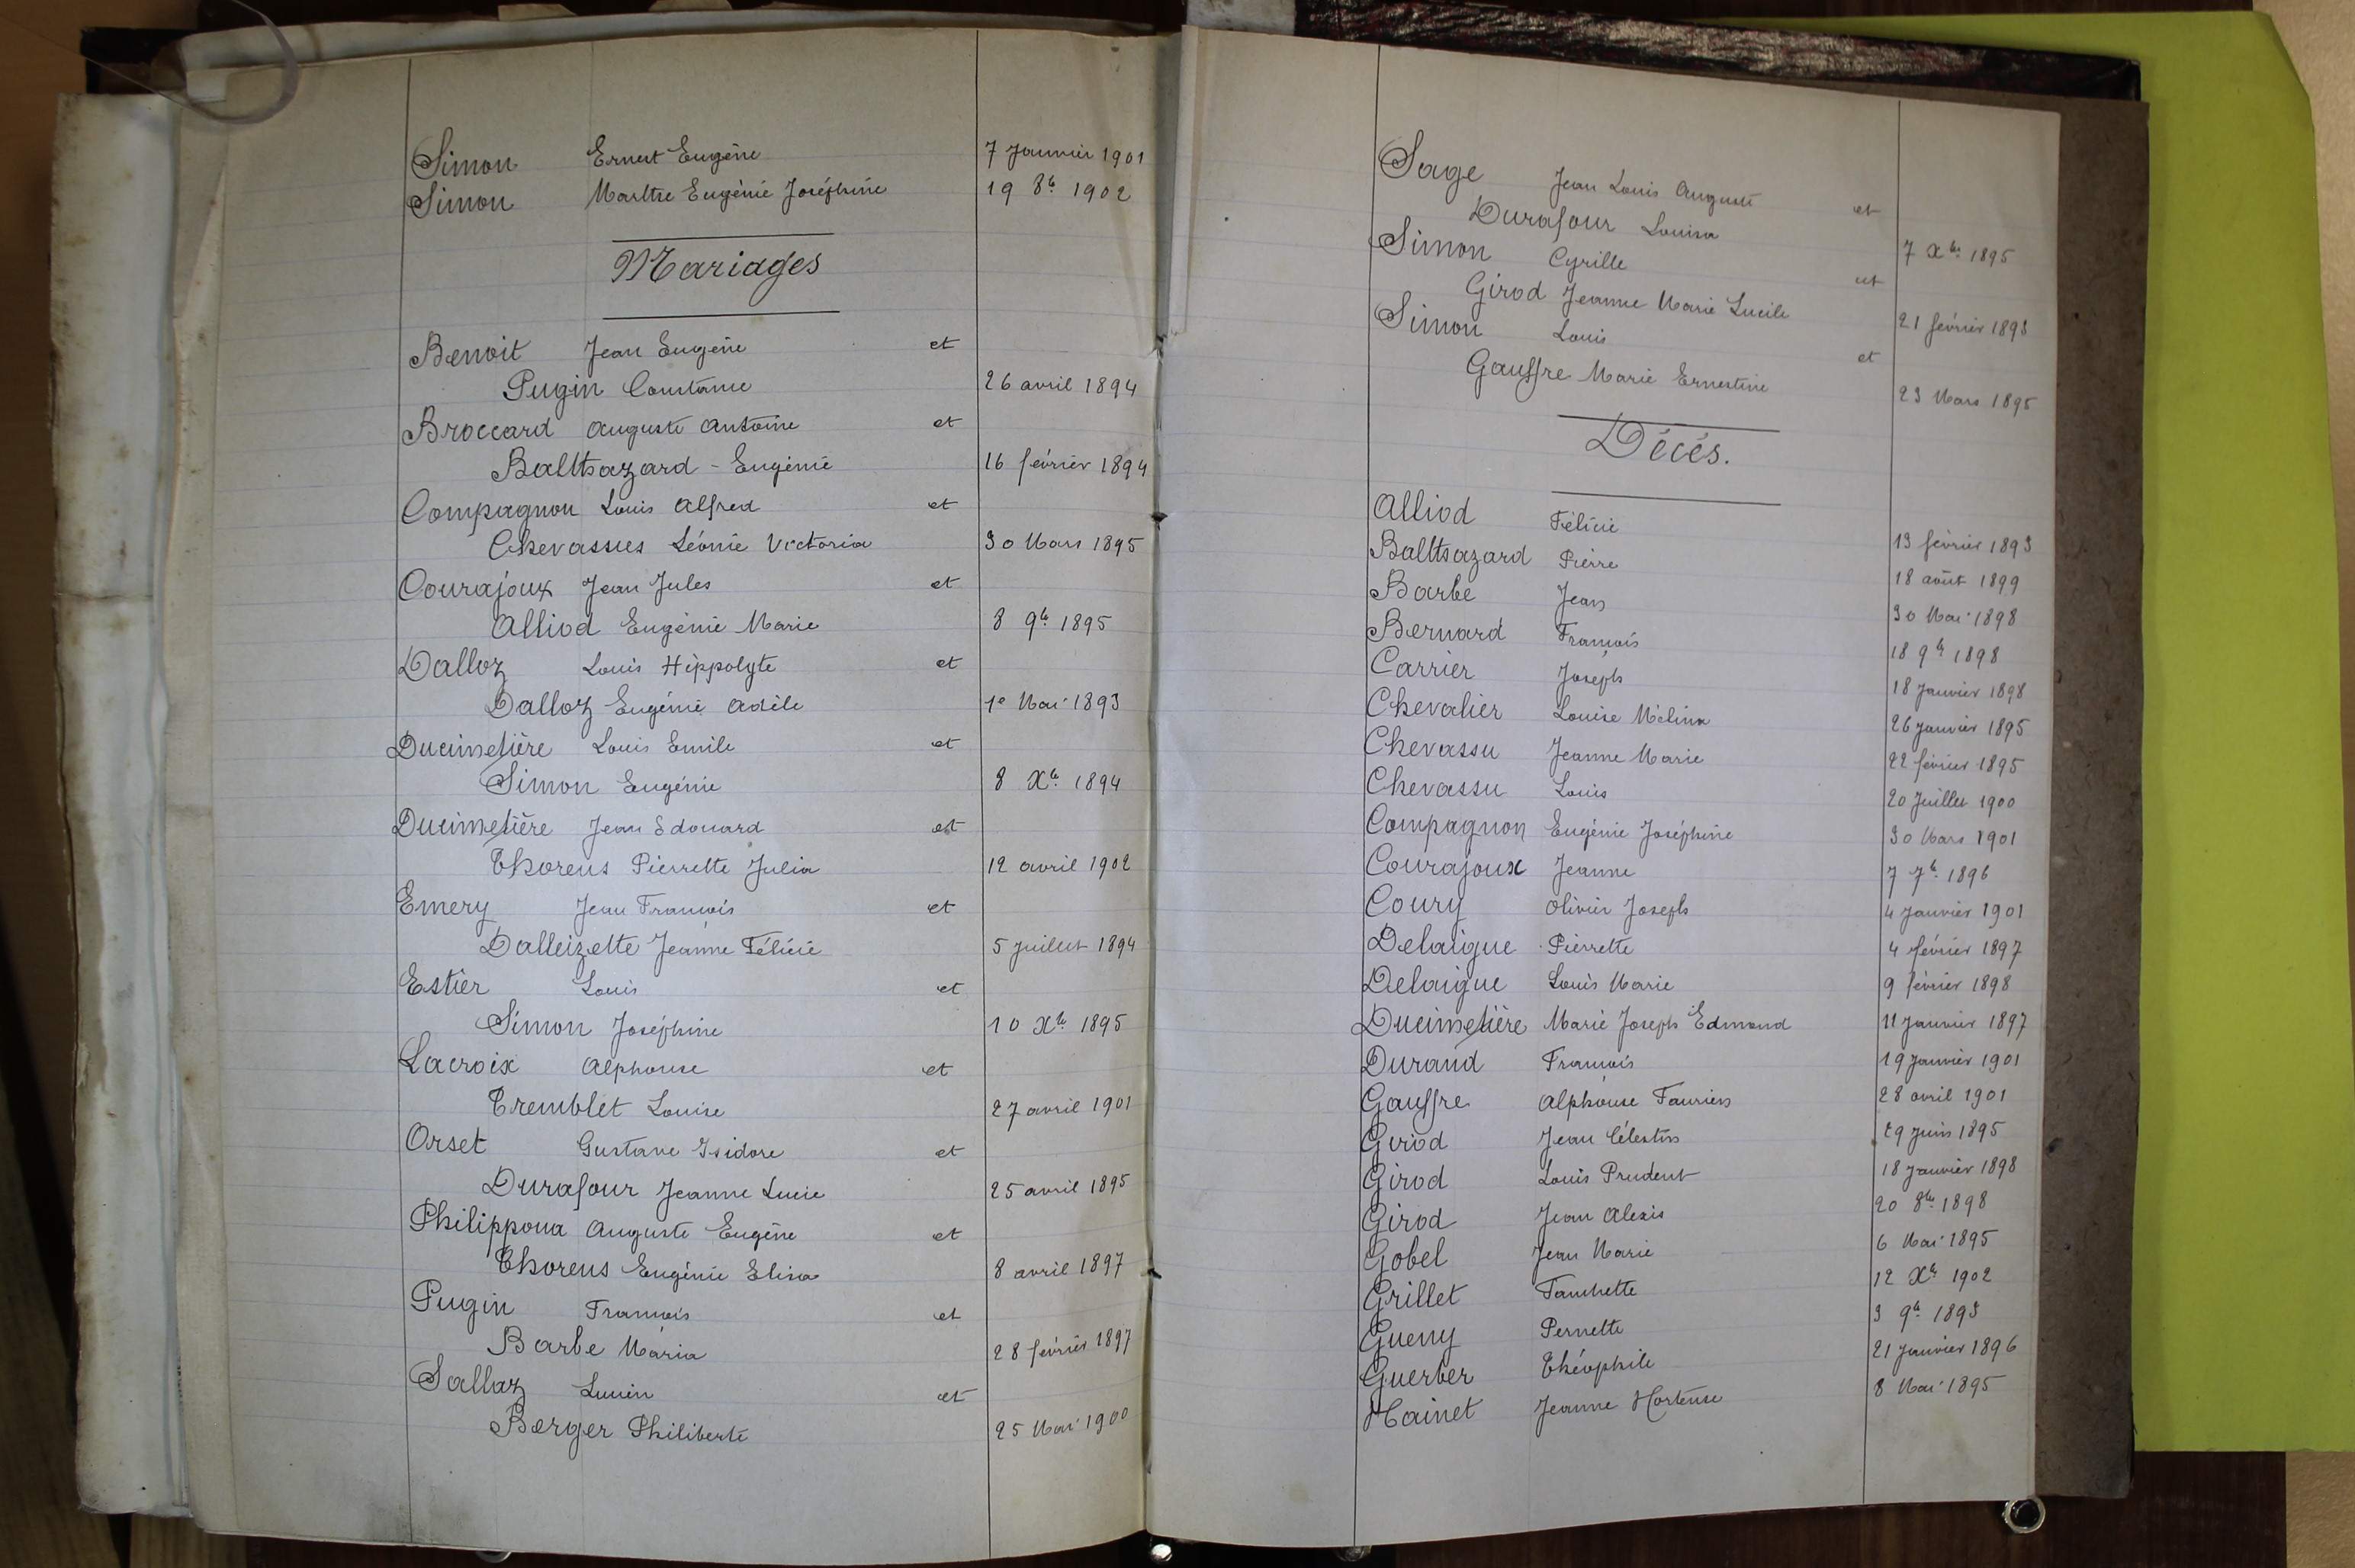 Simon Ernest Eugène 7 Janvier 1901
Simon Marthe Eugénie Joséphine 19 8bre 1902
Mariages
Benoit Jean Eugène et
Pugin Constance 26 avril 1894
Broccard Auguste Antoine et
Balthazard - Eugénie 16 février 1894
Compagnon Louis Alfred et
Chevassus Léonie Victoria 30 Mars 1895
Courajoux Jean Jules et
Alliod Eugénie Marie 8 9bre 1895
Dalloz Louis Hippolyte et
Dalloz Eugénie Adèle 1e Mai 1893
Ducimetière Louis Emile et
Simon Eugénie 8 Xbre 1894
Ducimetière Jean Edouard et
Thorens Pierrette Julia 12 avril 1902
Emery Jean François et
Dalleizette Jeanne Félicie 5 Juillet 1894
Estier Louis et
Simon Joséphine 10 Xbre 1895
Lacroix Alphonse et
Tremblet Louise 27 avril 1901
Orset Gustave Isidore et
Durafour Jeanne Lucie 25 avril 1895
Philippona Auguste Eugène et
Thorens Eugénie Elisa 8 avril 1897
Pugin François et
Barbe Maria 28 février 1897
Sallaz Lucien et
Berger Philiberte 25 Mai 1900
Sage Jean Louis Auguste et
Durafour Louisa 7 Xbre 1895
Simon Cyrille et
Girod Jeanne Marie Lucile 21 février 1893
Simon Louis et
Gauffre Marie Ernestine 23 Mars 1895
Décés.
Alliod Félicie 13 février 1893
Balthazard Pierre 18 août 1899
Barbe Jean 30 Mai 1898
Bernard François 18 9bre 1898
Carrier Joseph 18 Janvier 1898
Chevalier Louise Mélina 26 Janvier 1895
Chevassu Jeanne Marie 22 février 1895
Chevassu Louis 20 Juillet 1900
Compagnon Eugénie Joséphine 30 Mars 1901
Courajoux Jeanne 7 7bre 1896
Coury Olivier Joseph 4 Janvier 1901
Delaigue Pierrette 4 février 1897
Delaigue Louis Marie 9 février 1898
Ducimetière Marie Joseph Edmond 11 Janvier 1897
Durand François 19 Janvier 1901
Gauffre Alphonse Faurien 28 avril 1901
Girod Jean Célestin 29 Juin 1895
Girod Louis Prudent 18 Janvier 1898
Girod Jean Alexis 20 8bre 1898
Gobel Jean Marie 6 Mai 1895
Grillet Fanchette 12 Xbre 1902
Gueny Pernette 3 9bre 1893
Guerber Théophile 21 Janvier 1896
Hainet Jeanne Hortense 8 Mai 1895